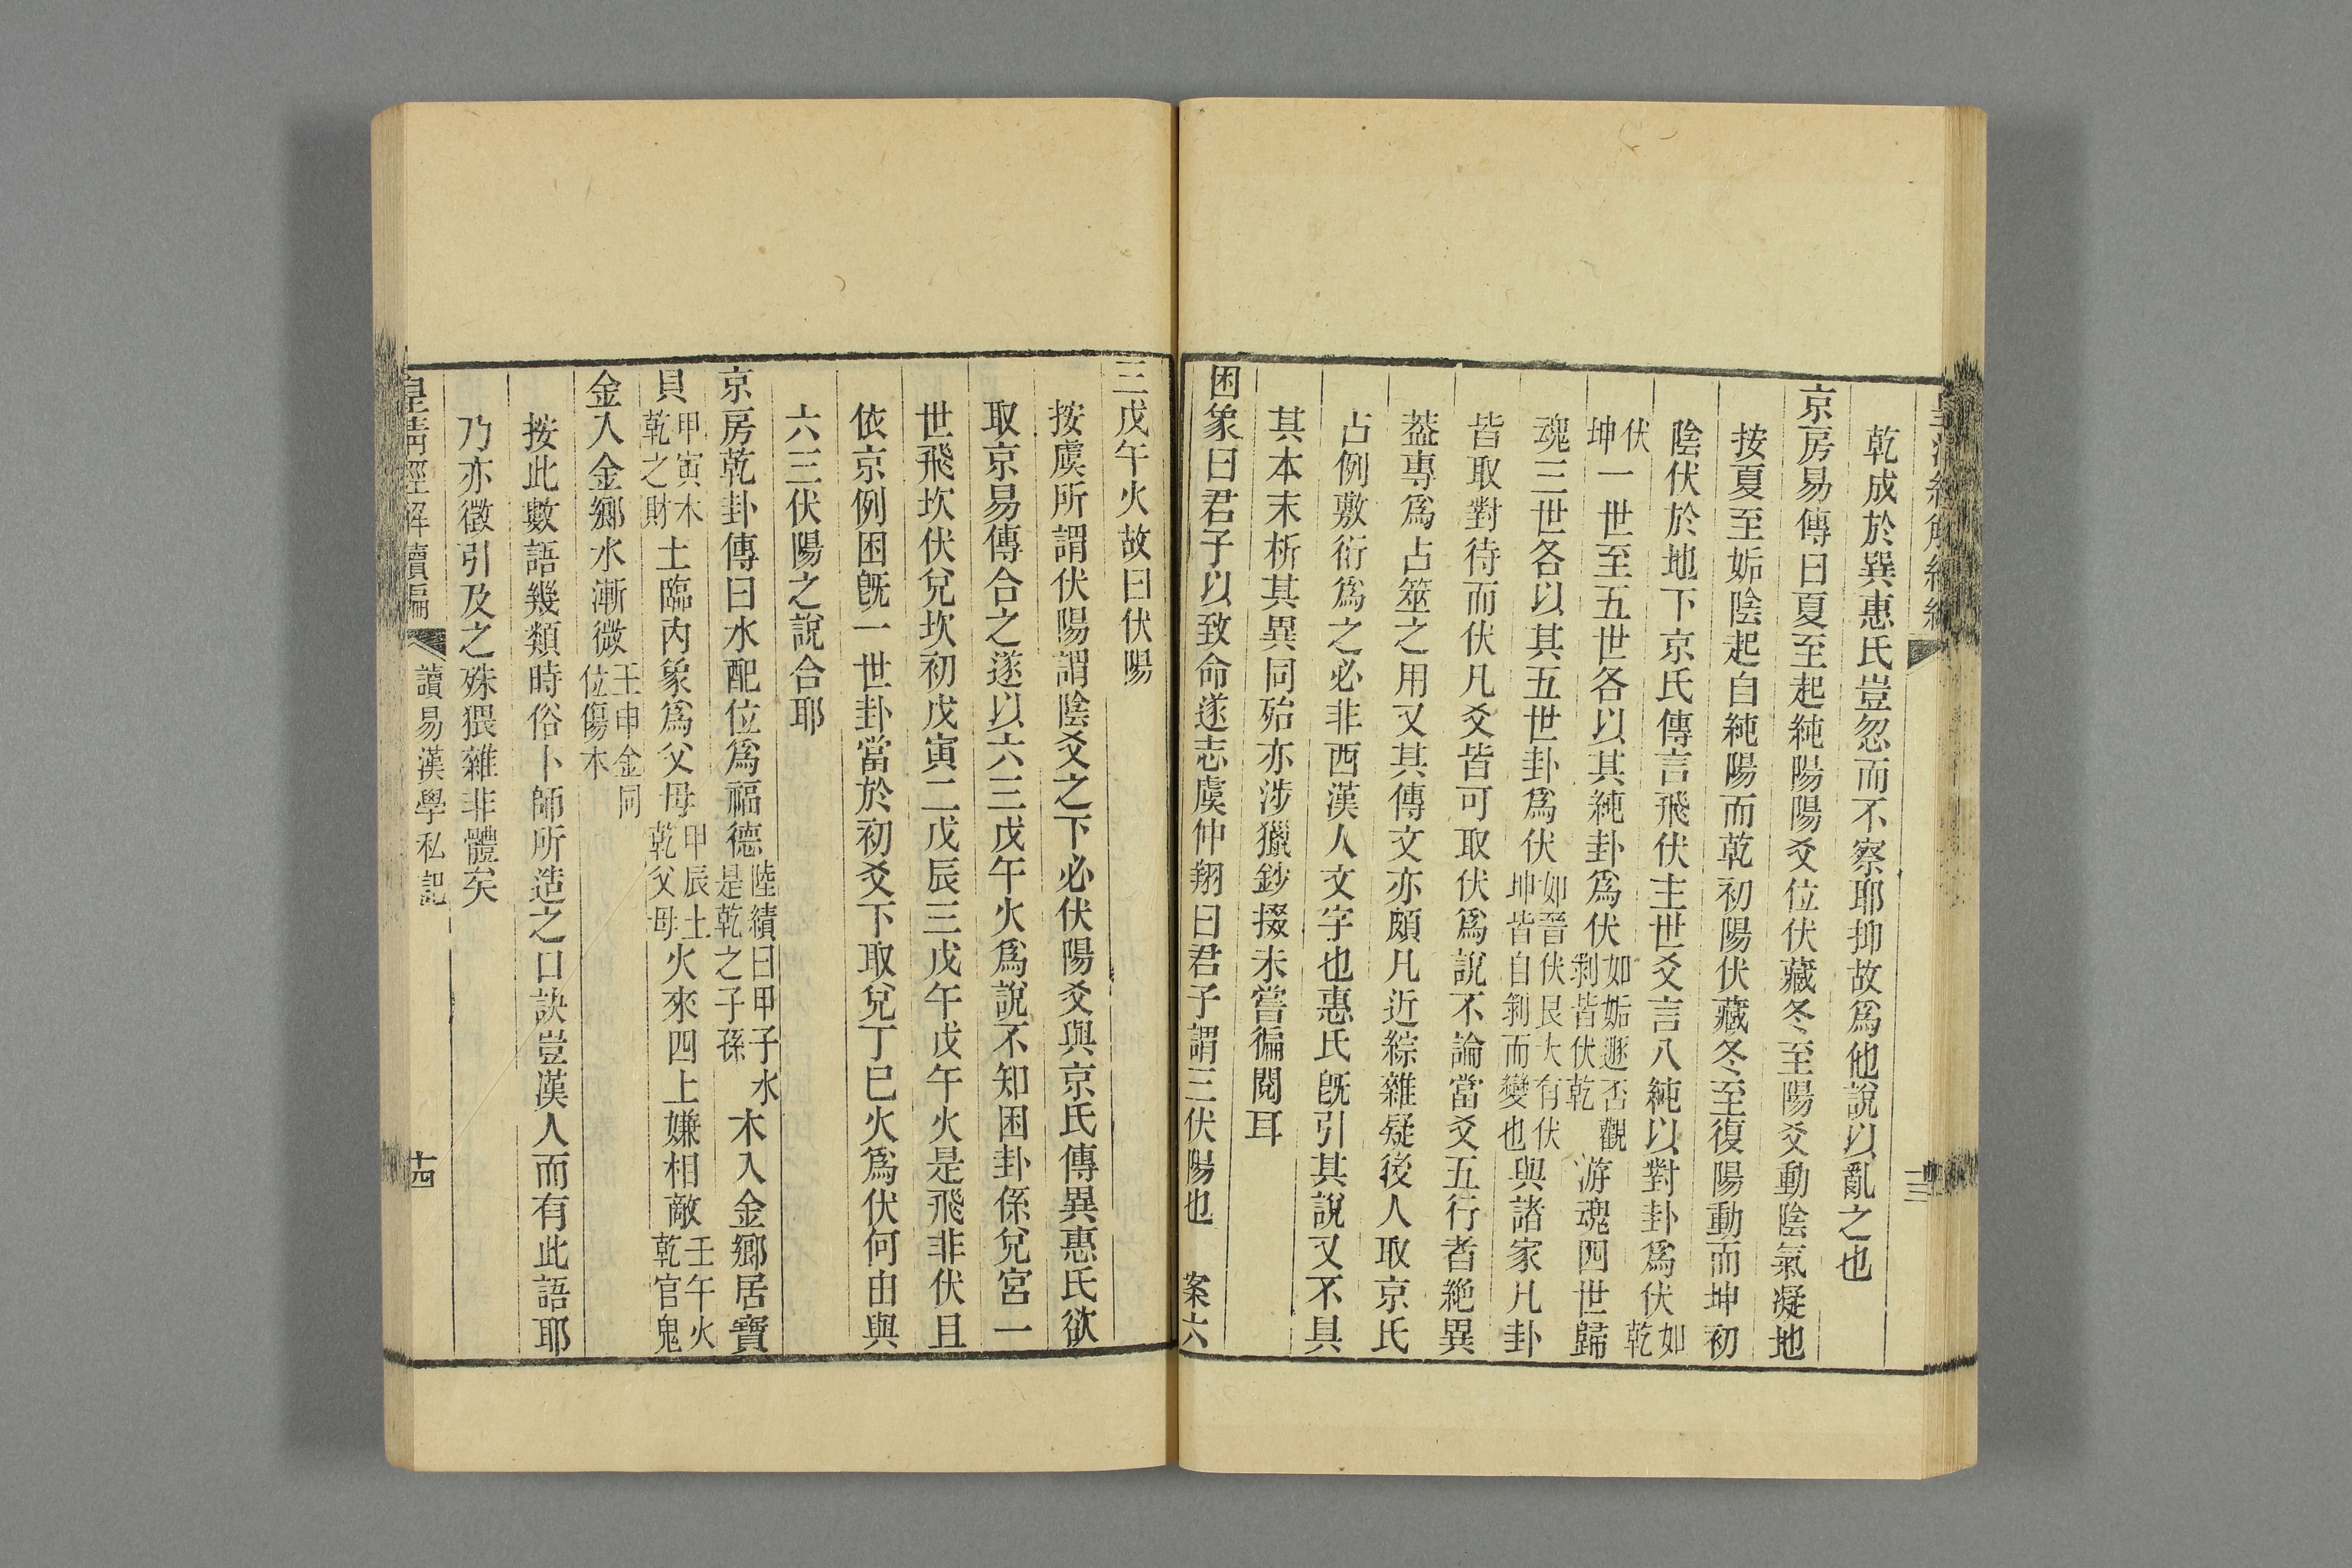 乾成於巽惠氏豈忽而不察耶抑故爲他說以亂之也
京房易傳曰夏至起純陽陽爻位伏藏冬至陽爻動陰氣凝地
按夏至姤陰起自純陽而乾初陽伏藏冬至復陽動而坤初
陰伏於地下京氏傳言飛伏主世爻言八純以對卦爲伏如乾
伏坤一世至五世各以其純卦爲伏如姤遯否觀剥皆伏乾游魂四世歸
魂三世各以其五世卦爲伏如晉伏艮大有伏坤皆自剝而變也與諸家凡卦
皆取對待而伏凡爻皆可取伏爲說不論當爻五行者絶異
葢專爲占筮之用又其傳文亦頗凡近綜雜疑後人取京氏
占例敷衍爲之必非西漢人文字也惠氏旣引其說又不具
其本末析其異同殆亦涉獵鈔掇未嘗徧閱耳
困象曰君子以致命遂志虞仲翔曰君子謂三伏陽也　案六
三戊午火故曰伏陽
按虞所謂伏陽謂陰爻之下必伏陽爻與京氏傳異惠氏欲
取京易傳合之遂以六三戊午火爲說不知困卦係兌宮一
世飛坎伏兌坎初戊寅二戊辰三戊午戊午火是飛非伏且
依京例困旣一世卦當於初爻下取兌丁巳火爲伏何由與
六三伏陽之說合耶
京房乾卦傳曰水配位爲福德陸績曰甲子水是乾之子孫木入金鄉居寶
貝甲寅木乾之財土臨內象爲父母甲辰土乾父母火來四上嫌相敵壬午火乾官鬼
金入金鄉水漸微壬申金同位傷木
按此數語幾類時俗卜師所造之口訣豈漢人而有此語耶
乃亦徵引及之殊猥雜非體矣
皇淸經解續編　讀易漢學私記　十四